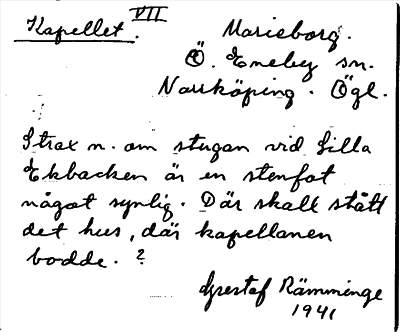 Kapellet. VII
Marieborg.
Ö. Eneby sn.
Norrköping. Ögl.
Strax n. om stugan vid Lilla
Ekbacken är en stenfot
något synlig. Där skall stått
det hus, där kapellanen
bodde. ?
Gustaf Rämminge
1941